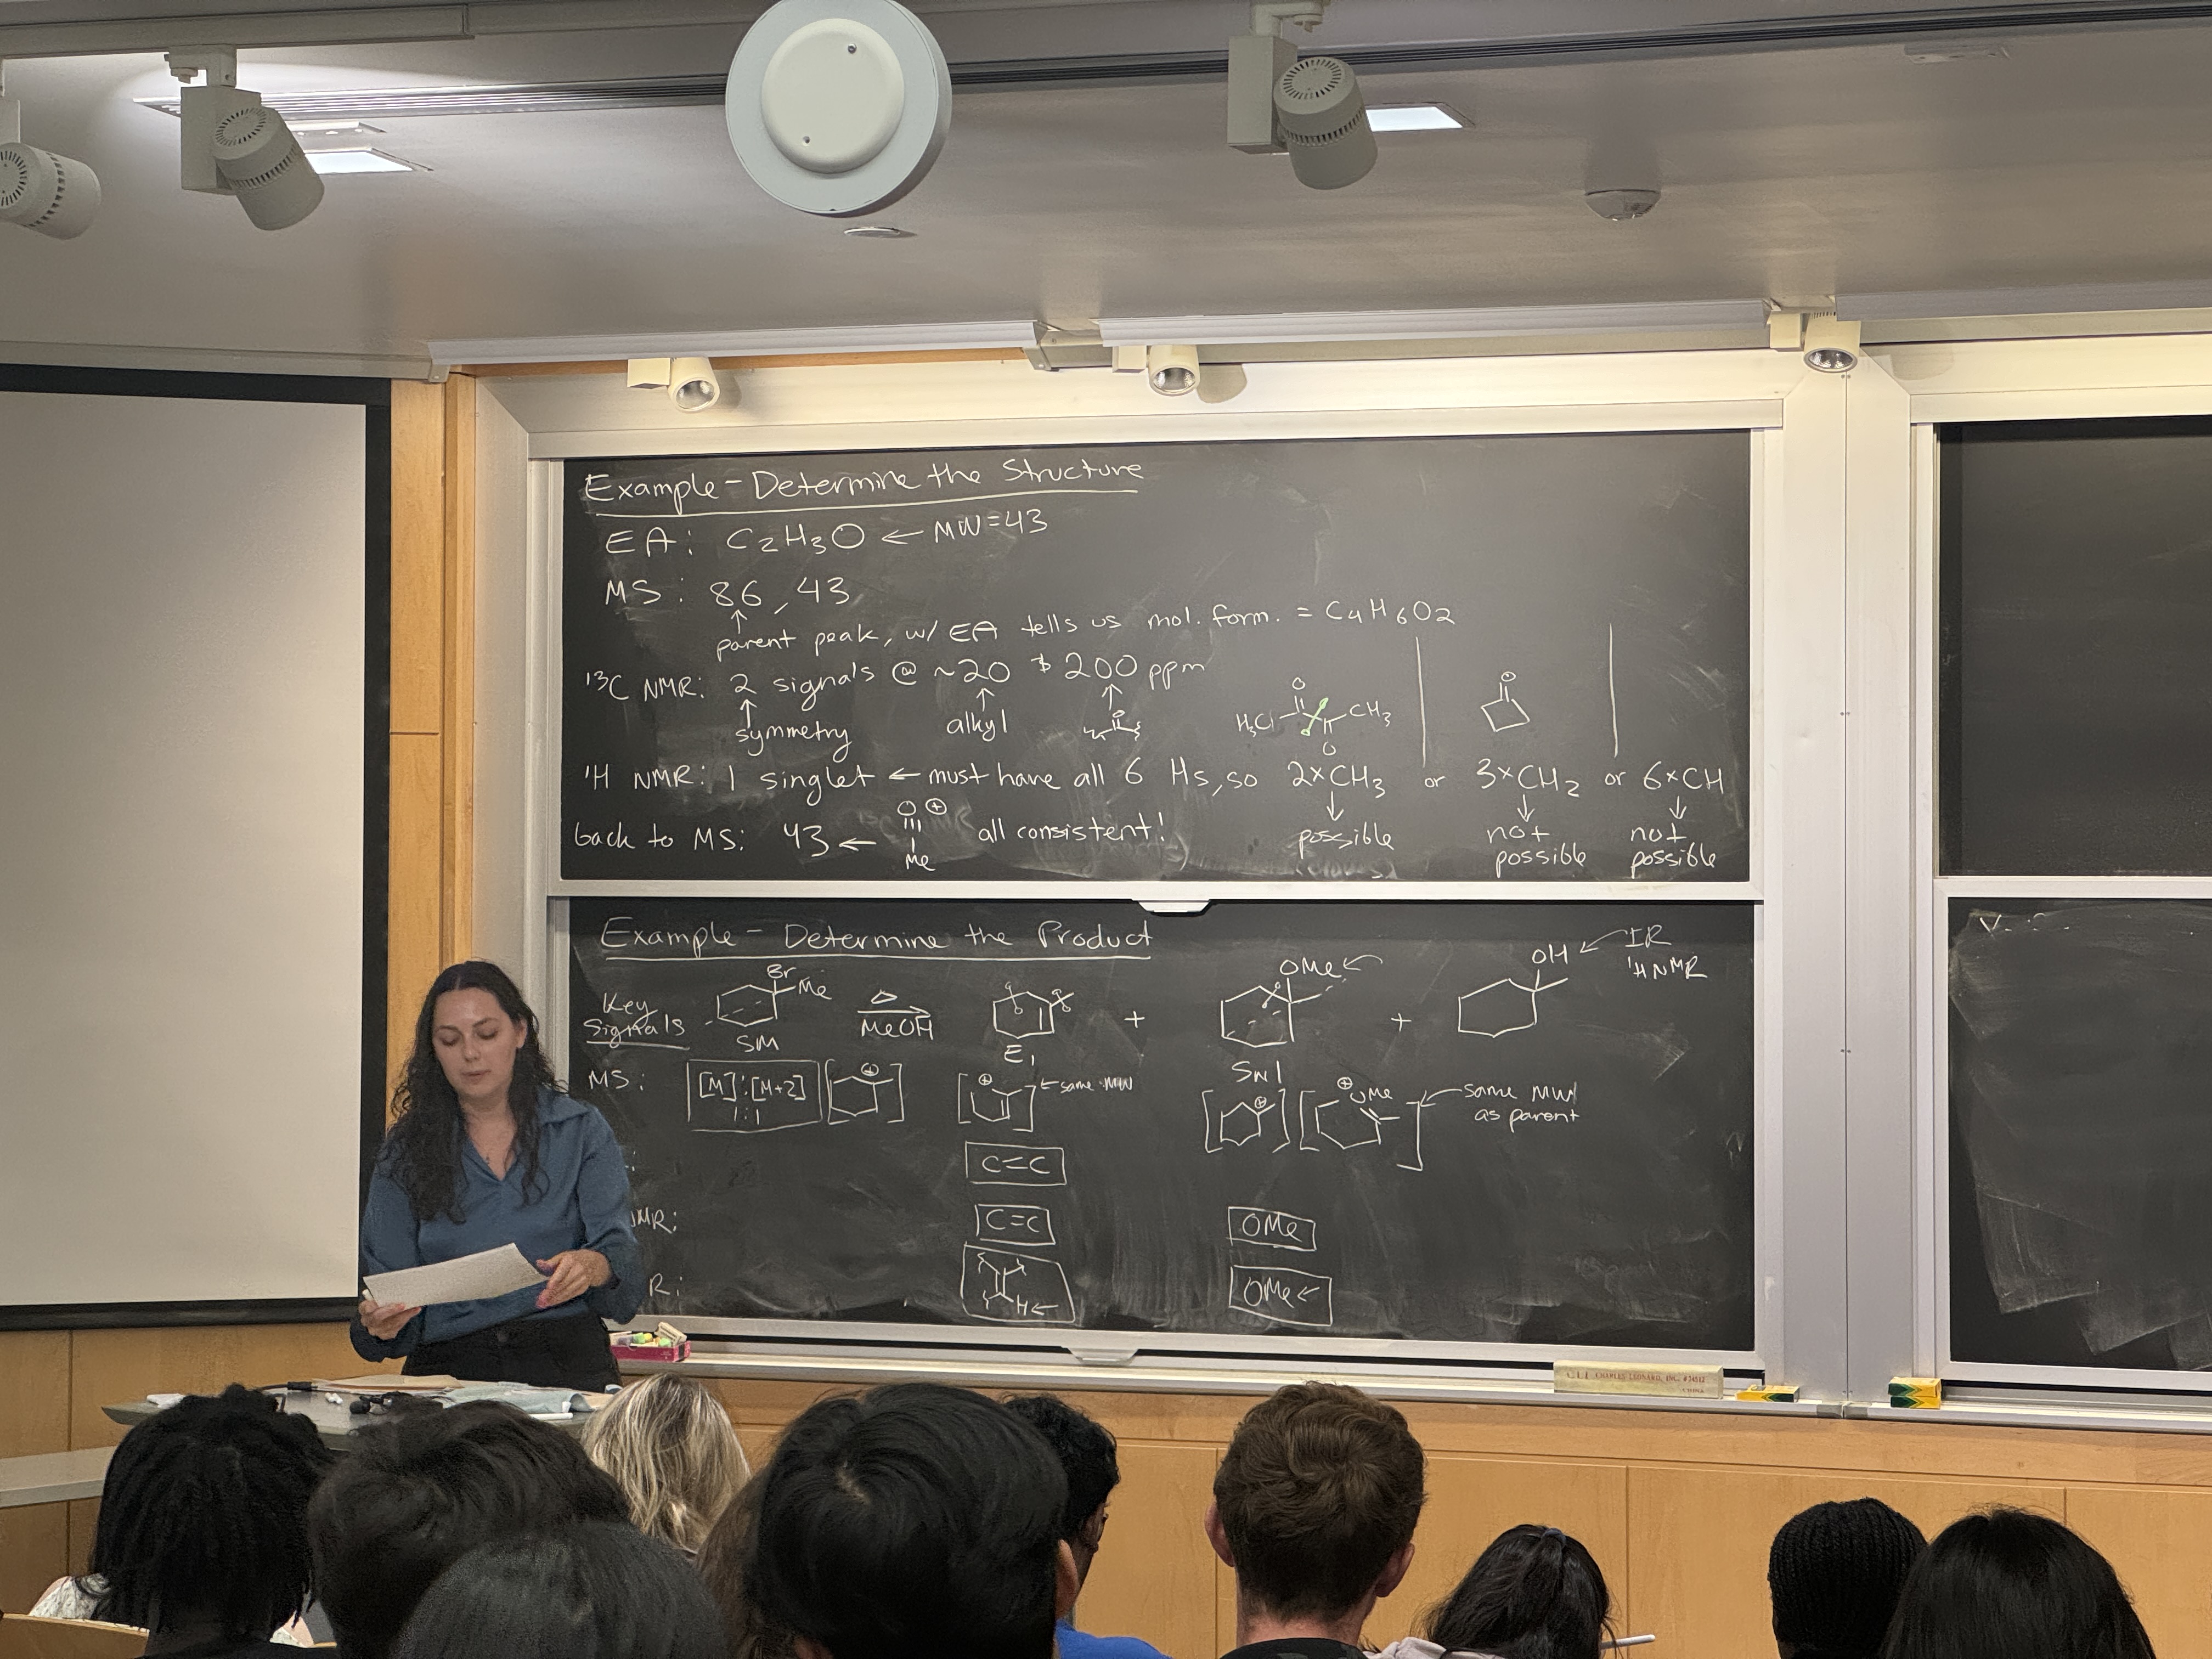 Example - Determine the Structure
EA: C2H3O ← MW=43
MS: 86, 43
↑
parent peak, w/ EA tells us mol. form. = C4H6O2
13C NMR: 2 signals @ ~20 & 200 ppm
↑ ↑ ↑
symmetry alkyl O
O
H3C CH3
O
O
1H NMR: 1 singlet ← must have all 6 Hs, so 2×CH3 or 3×CH2 or 6×CH
↓ ↓ ↓
possible not possible not possible
back to MS: 43 ← O ⊕ Me all consistent!
Example - Determine the Product
Key Signals
Br Me
SM
Δ
MeOH
E1
+
OMe
SN1
+
OH ← IR
1H NMR
MS: [M]:[M+2]
1:1
[⊕] [⊕] ← same MW
[⊕] [⊕ OMe] ← same MW as parent
C=C
MR:
C=C OMe
R:
H← OMe←
CHARLES LEONARD, INC. #74512